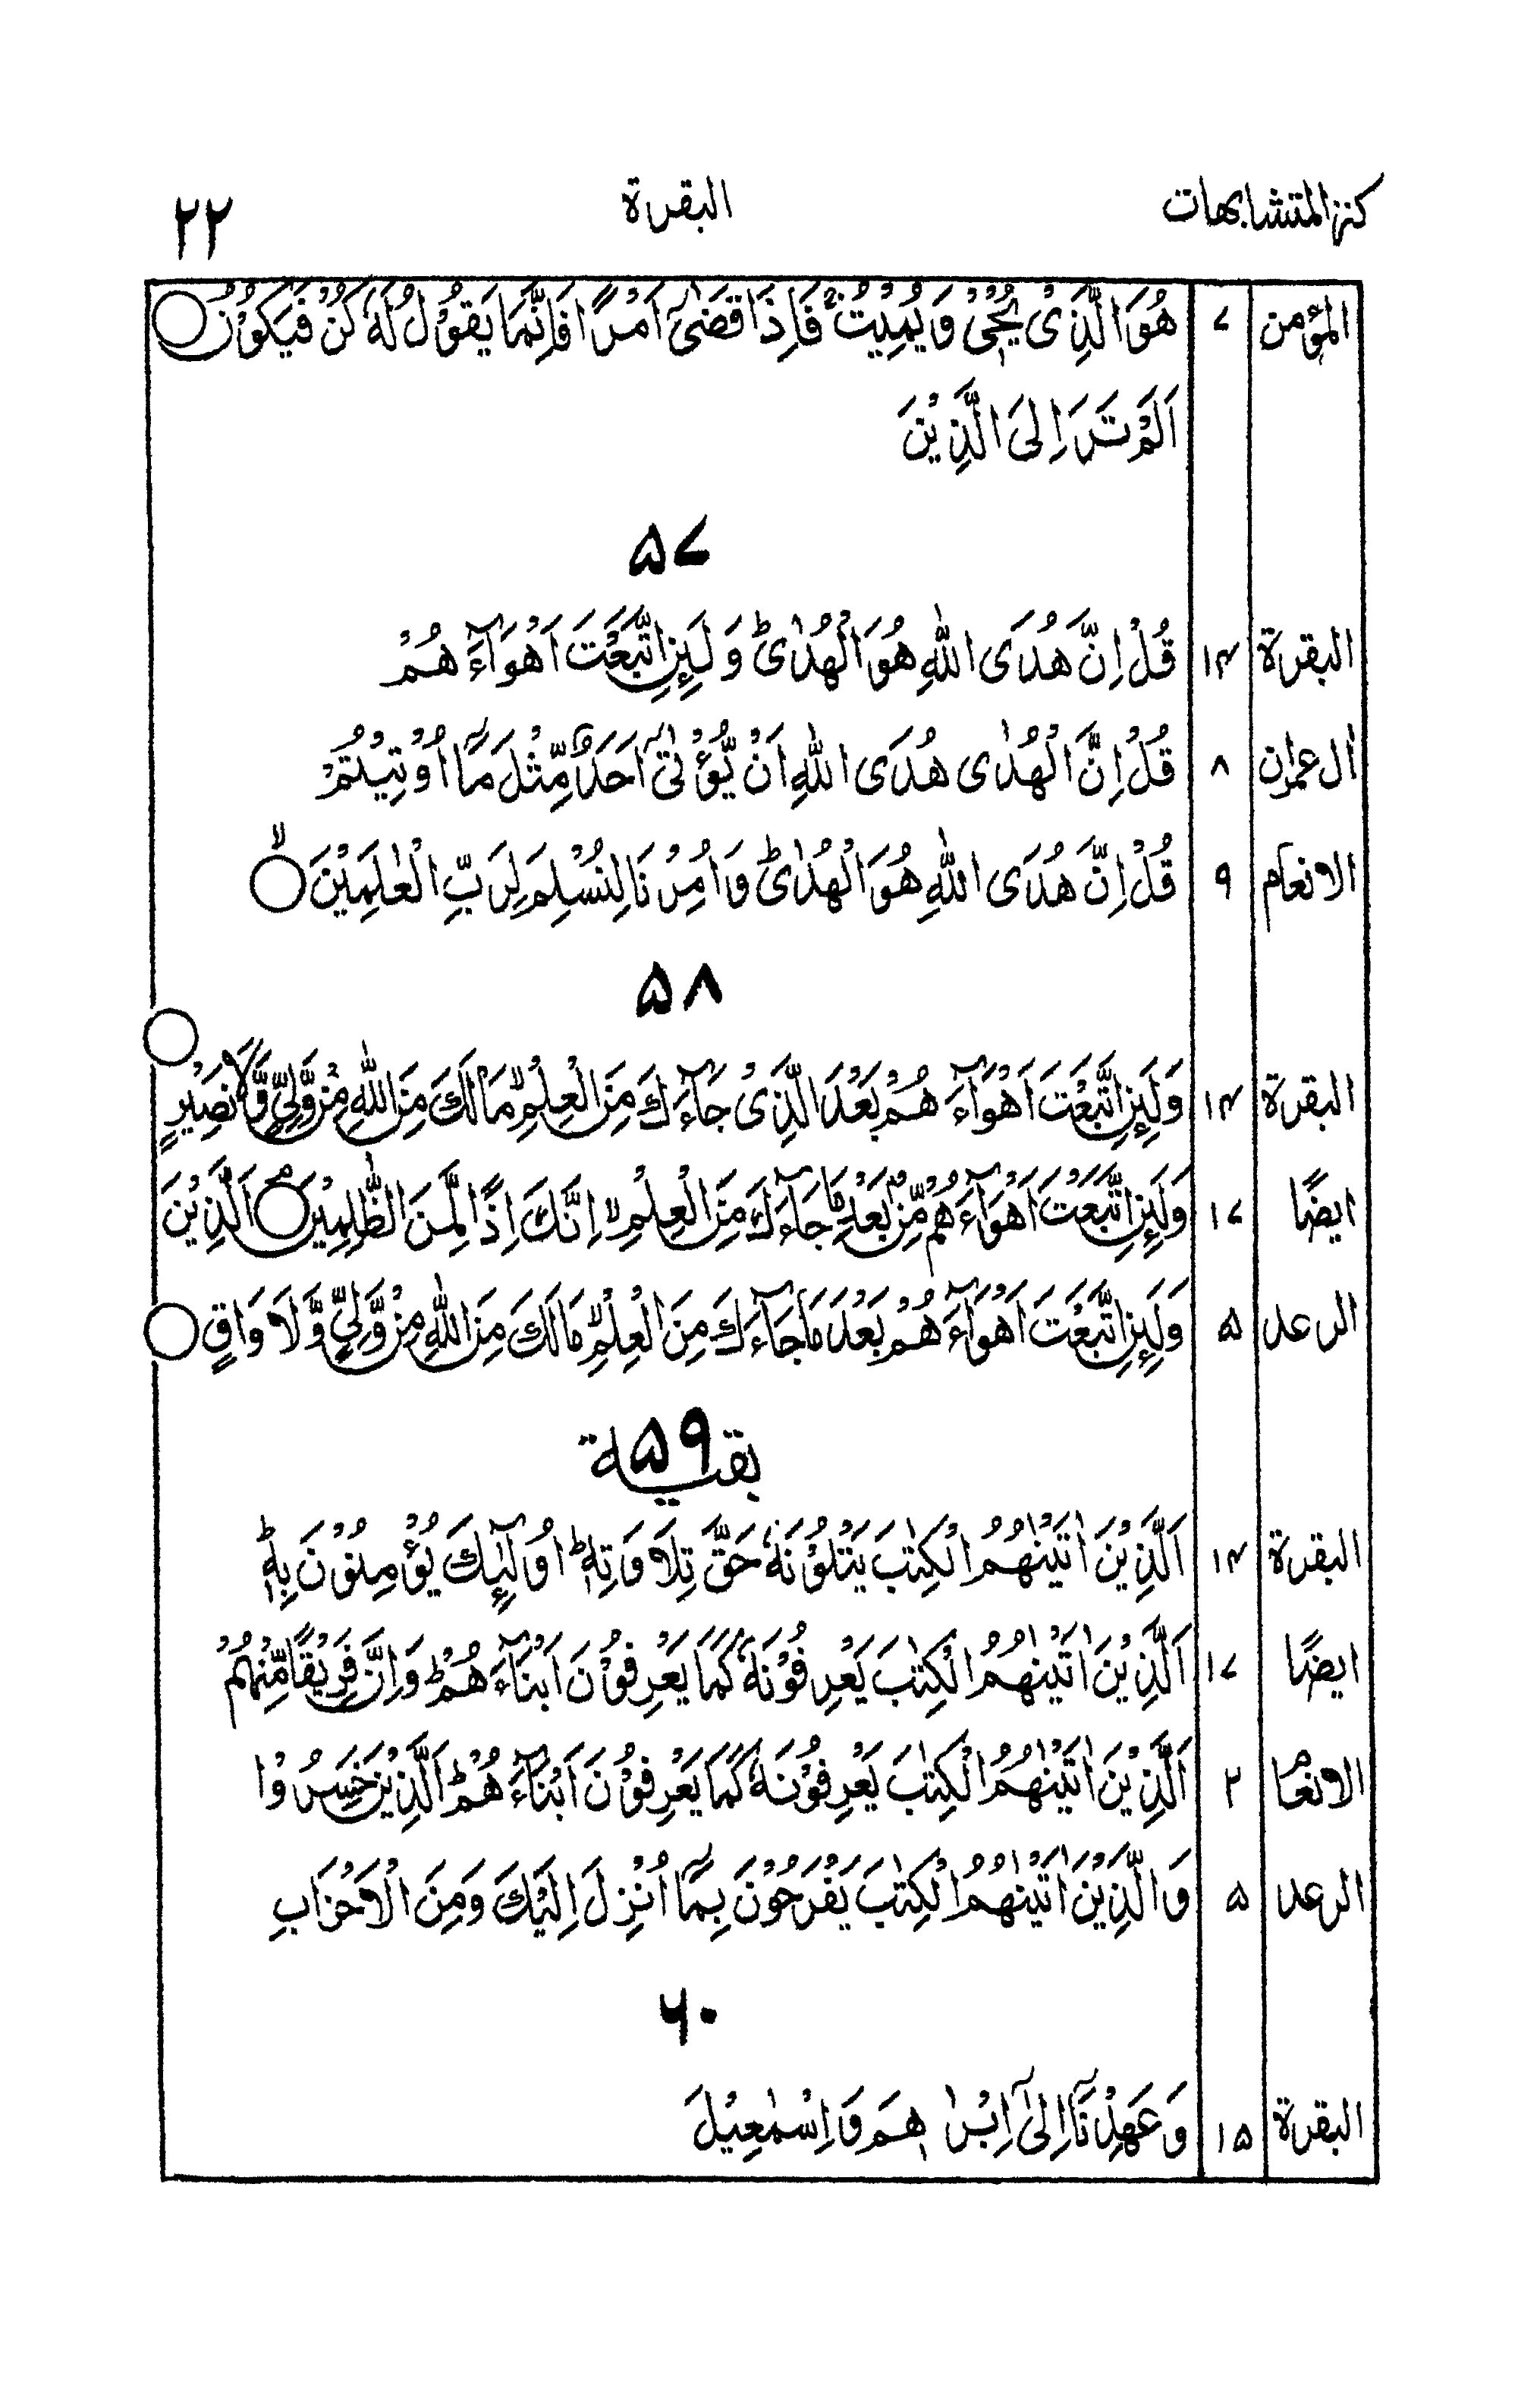 كنز المتشابهات البقرة ٢٢
المؤمن ۷ هُوَ الَّذِیْ یُحْیٖ وَ یُمِیْتُ ۚ فَاِذَا قَضٰۤی اَمْرًا فَاِنَّمَا یَقُوْلُ لَهٗ كُنْ فَیَكُوْنُ ○
اَلَمْ تَرَ اِلَی الَّذِیْنَ
۵۷
البقرة ۱۴ قُلْ اِنَّ هُدَی اللّٰهِ هُوَ الْهُدٰی ؕ وَ لَىِٕنِ اتَّبَعْتَ اَهْوَآءَهُمْ
اٰل عمرٰن ۸ قُلْ اِنَّ الْهُدٰی هُدَی اللّٰهِ اَنْ یُّؤْتٰۤی اَحَدٌ مِّثْلَ مَاۤ اُوْتِیْتُمْ
الانعام ۹ قُلْ اِنَّ هُدَی اللّٰهِ هُوَ الْهُدٰی ؕ وَ اُمِرْنَا لِنُسْلِمَ لِرَبِّ الْعٰلَمِیْنَ ○ۙ
۵۸
البقرة ۱۴ وَ لَىِٕنِ اتَّبَعْتَ اَهْوَآءَهُمْ بَعْدَ الَّذِیْ جَآءَكَ مِنَ الْعِلْمِ ۙ مَا لَكَ مِنَ اللّٰهِ مِنْ وَّلِیٍّ وَّ لَا نَصِیْرٍ ○
ایضًا ۱۷ وَ لَىِٕنِ اتَّبَعْتَ اَهْوَآءَهُمْ مِّنْۢ بَعْدِ مَا جَآءَكَ مِنَ الْعِلْمِ ۙ اِنَّكَ اِذًا لَّمِنَ الظّٰلِمِیْنَ ○ۘ اَلَّذِیْنَ
الرعد ۵ وَ لَىِٕنِ اتَّبَعْتَ اَهْوَآءَهُمْ بَعْدَ مَا جَآءَكَ مِنَ الْعِلْمِ ۙ مَا لَكَ مِنَ اللّٰهِ مِنْ وَّلِیٍّ وَّ لَا وَاقٍ ○
بقية ۵۹
البقرة ۱۴ اَلَّذِیْنَ اٰتَیْنٰهُمُ الْكِتٰبَ یَتْلُوْنَهٗ حَقَّ تِلَاوَتِهٖ ؕ اُولٰٓىِٕكَ یُؤْمِنُوْنَ بِهٖ ؕ
ایضًا ۱۷ اَلَّذِیْنَ اٰتَیْنٰهُمُ الْكِتٰبَ یَعْرِفُوْنَهٗ كَمَا یَعْرِفُوْنَ اَبْنَآءَهُمْ ؕ وَ اِنَّ فَرِیْقًا مِّنْهُمْ
الانعام ۲ اَلَّذِیْنَ اٰتَیْنٰهُمُ الْكِتٰبَ یَعْرِفُوْنَهٗ كَمَا یَعْرِفُوْنَ اَبْنَآءَهُمْ ۘ اَلَّذِیْنَ خَسِرُوْا
الرعد ۵ وَ الَّذِیْنَ اٰتَیْنٰهُمُ الْكِتٰبَ یَفْرَحُوْنَ بِمَاۤ اُنْزِلَ اِلَیْكَ وَ مِنَ الْاَحْزَابِ
۶۰
البقرة ۱۵ وَ عَهِدْنَاۤ اِلٰۤی اِبْرٰهٖمَ وَ اِسْمٰعِیْلَ